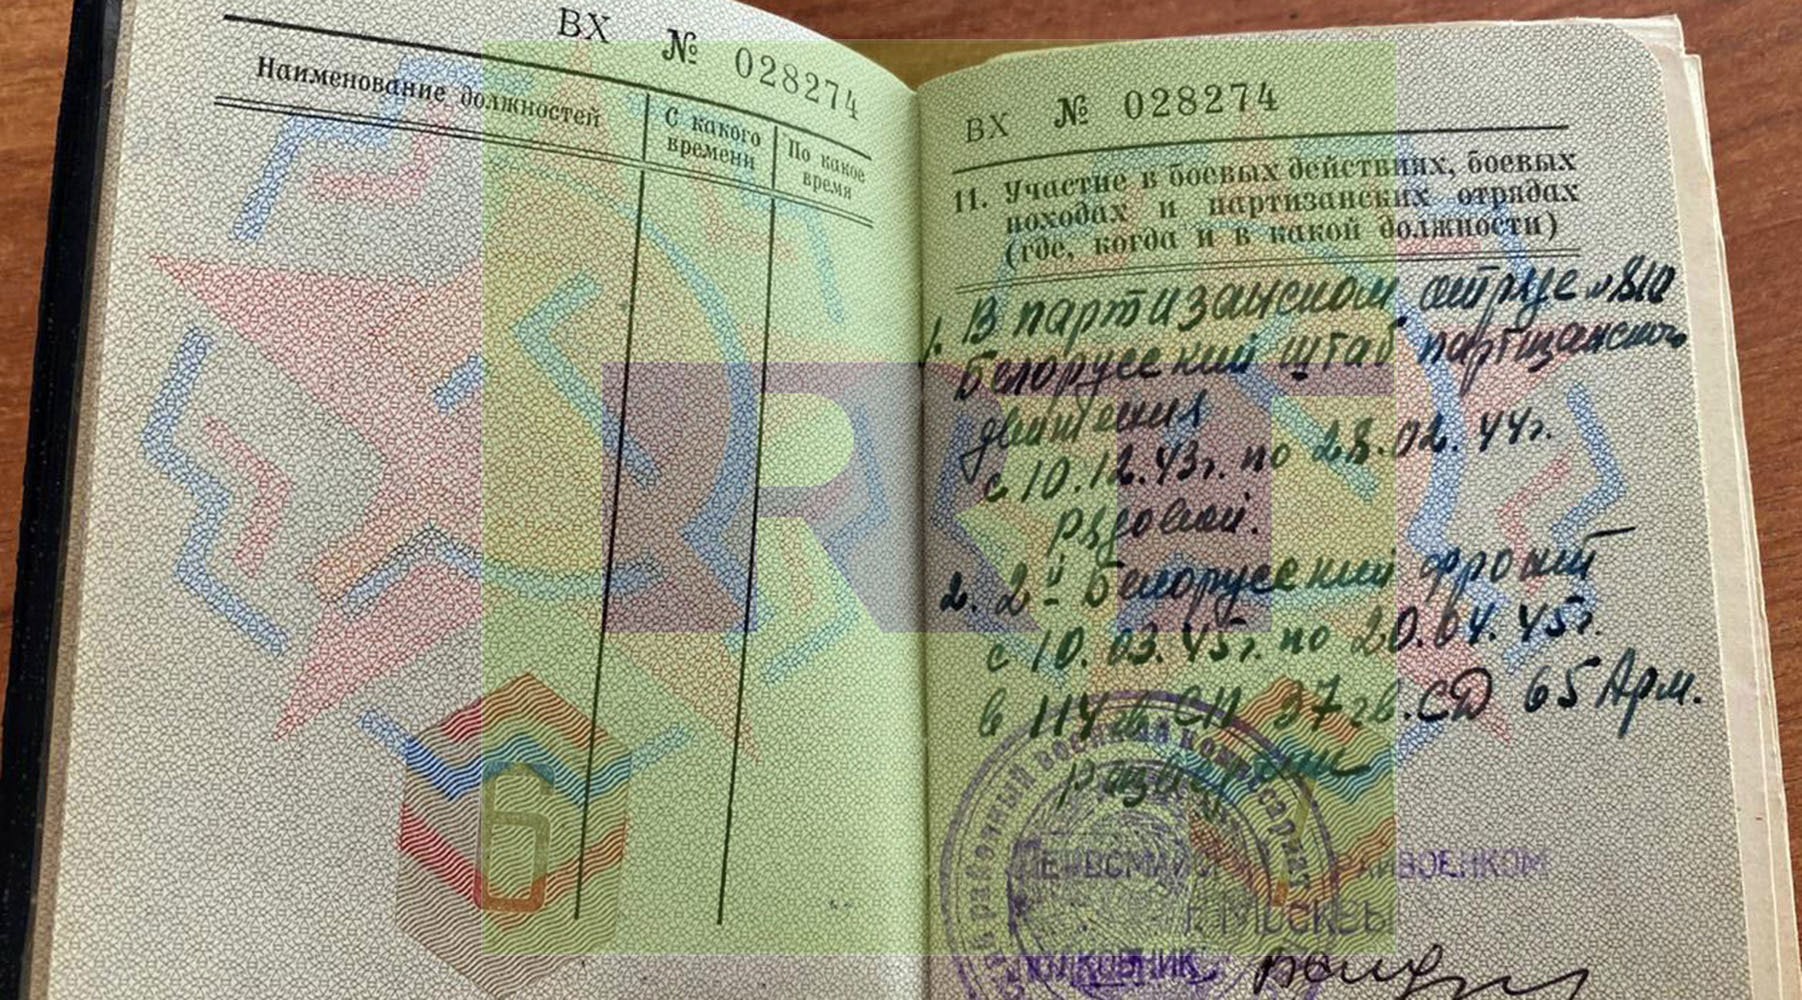 ВХ № 028274
Наименование должностей
С какого
времени
По какое
время
6
ВХ № 028274
11. Участие в боевых действиях, боевых
походах и партизанских отрядах
(где, когда и в какой должности)
1. В партизанском отряде №810
Белорусский штаб партизанского
движения
с 10.12.43г. по 28.02.44г.
рядовой.
2. 2й Белорусский фронт
с 10.03.45г. по 20.04.45г.
в 114 гв. СП 37 гв. СД 65 Арм.
разведчик
районный военный комиссариат
ПЕРВОМАЙСКИЙ РАЙВОЕНКОМ
г. МОСКВЫ
ПОЛКОВНИК
RT